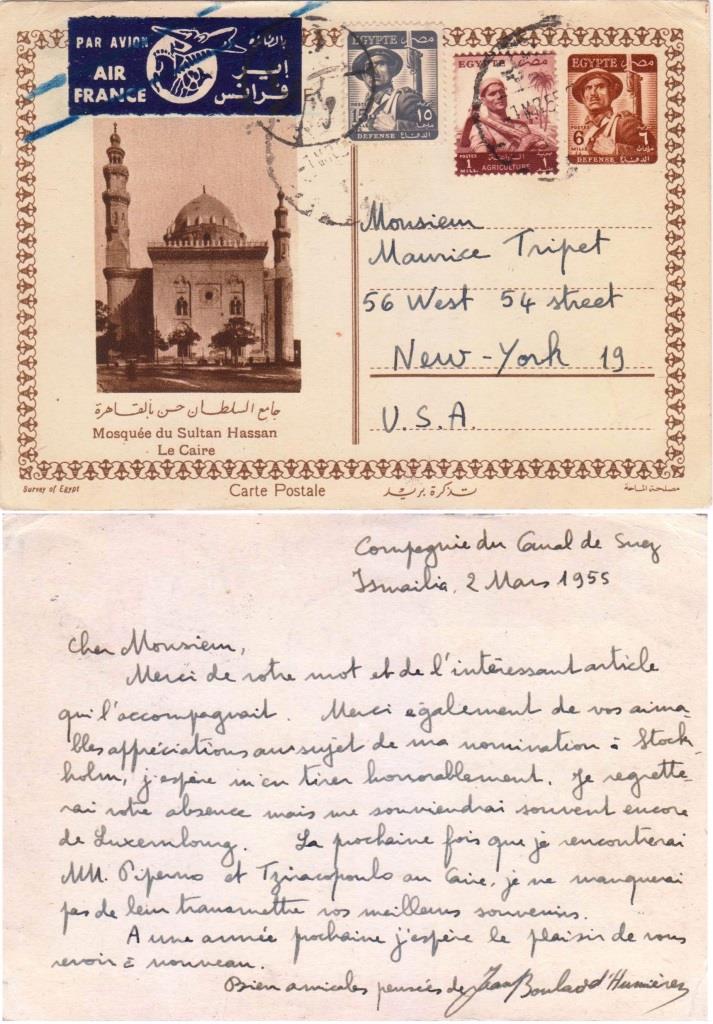 PAR AVION بالطائرة
AIR FRANCE إير فرانس
EGYPTE مصر
POSTES
15 ١٥
MILLS مليم
DEFENSE الدفاع
EGYPTE مصر
POSTES
1 ١
MILL. مليم
AGRICULTURE الزراعة
EGYPTE مصر
POSTES
6 ٦
MILLS مليمات
DEFENSE الدفاع
Monsieur
Maurice Tripet
56 West 54 street
New-York 19
U.S.A.
جامع السلطان حسن بالقاهرة
Mosquée du Sultan Hassan
Le Caire
Survey of Egypt
Carte Postale
تذكرة بريد
مصلحة المساحة
Compagnie du Canal de Suez
Ismailia, 2 Mars 1955
Cher Monsieur,
Merci de votre mot et de l'intéressant article
qui l'accompagnait. Merci également de vos aima-
bles appréciations au sujet de ma nomination à Stock-
holm, j'espère m'en tirer honorablement. Je regrette-
rai votre absence mais me souviendrai souvent encore
de Luxembourg. La prochaine fois que je rencontrerai
MM. Piperno et Tziracopoulo au Caire, je ne manquerai
pas de leur transmettre vos meilleurs souvenirs.
A une année prochaine j'espère le plaisir de vous
revoir à nouveau.
Bien amicales pensées de Jean Boulad d'Humières